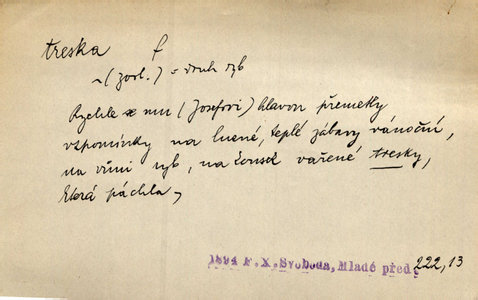 treska f
~ (zool.) = druh ryb
Rychle se mu (Josefovi) hlavou přemetly
vzpomínky na lucné, teplé zábavy vánoční,
na vůni ryb, na kousek vařené tresky,
která páchla,
1894 F. X. Svoboda, Mladé před. 222, 13